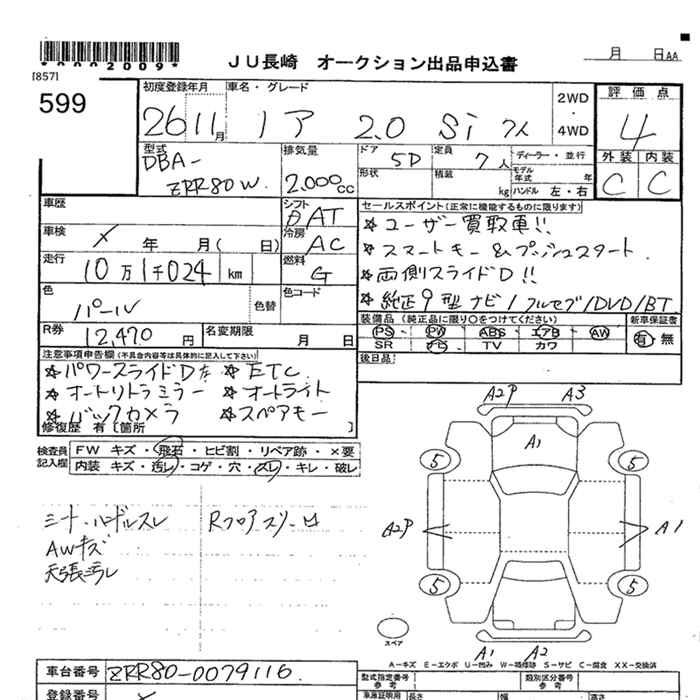 *0002009*
[857]
JU長崎 オークション出品申込書
月 日AA
599
初度登録年月
車名・グレード
2WD
・
4WD
評価点
26 11月
ノア 2.0 Si
4
型式
DBA-
ZRR80W
排気量
2,000cc
ドア
5D
定員
7人
ディーラー・並行
形状
積載
kg
モデル年式 年
ハンドル 左・右
外装 内装
C C
車歴
シフト
AT
セールスポイント(正常に機能するものに限ります)
車検
× 年 月( 日)
冷房
AC
☆ユーザー買取車!!
☆スマートキー&プッシュスタート
走行
10万1千024 km
燃料
G
☆両側スライドD!!
色
パール
色替
色コード
☆純正9型ナビ/フルセグ/DVD/BT
R券
12,470円
名変期限
月 日
装備品(純正品に限り○をつけてください)
新車保証書
PS PW ABS エアB AW
SR ナビ TV カワ
有・無
後日品
注意事項申告欄(不具合内容等は具体的に記入して下さい)
☆パワースライドD左 ☆ETC
☆オートリトラミラー ☆オートライト
☆バックカメラ ☆スペアキー
修復歴 有[箇所 ]
検査員記入欄
FW キズ・飛石・ヒビ割・リペア跡・×要
内装 キズ・汚レ・コゲ・穴・スレ・キレ・破レ
シート・ハンドルスレ
AWキズ
天張汚レ
A2P A3
A1
5 5
A2P A1
5 5
スペア
A1 A2
A-キズ E-エクボ U-凹み W-補修跡 S-サビ C-腐食 XX-交換済
車台番号
ZRR80-0079116
型式指定番号
参考
類別区分番号
参考
登録番号
車庫証明用
参考
長さ
幅
高さ